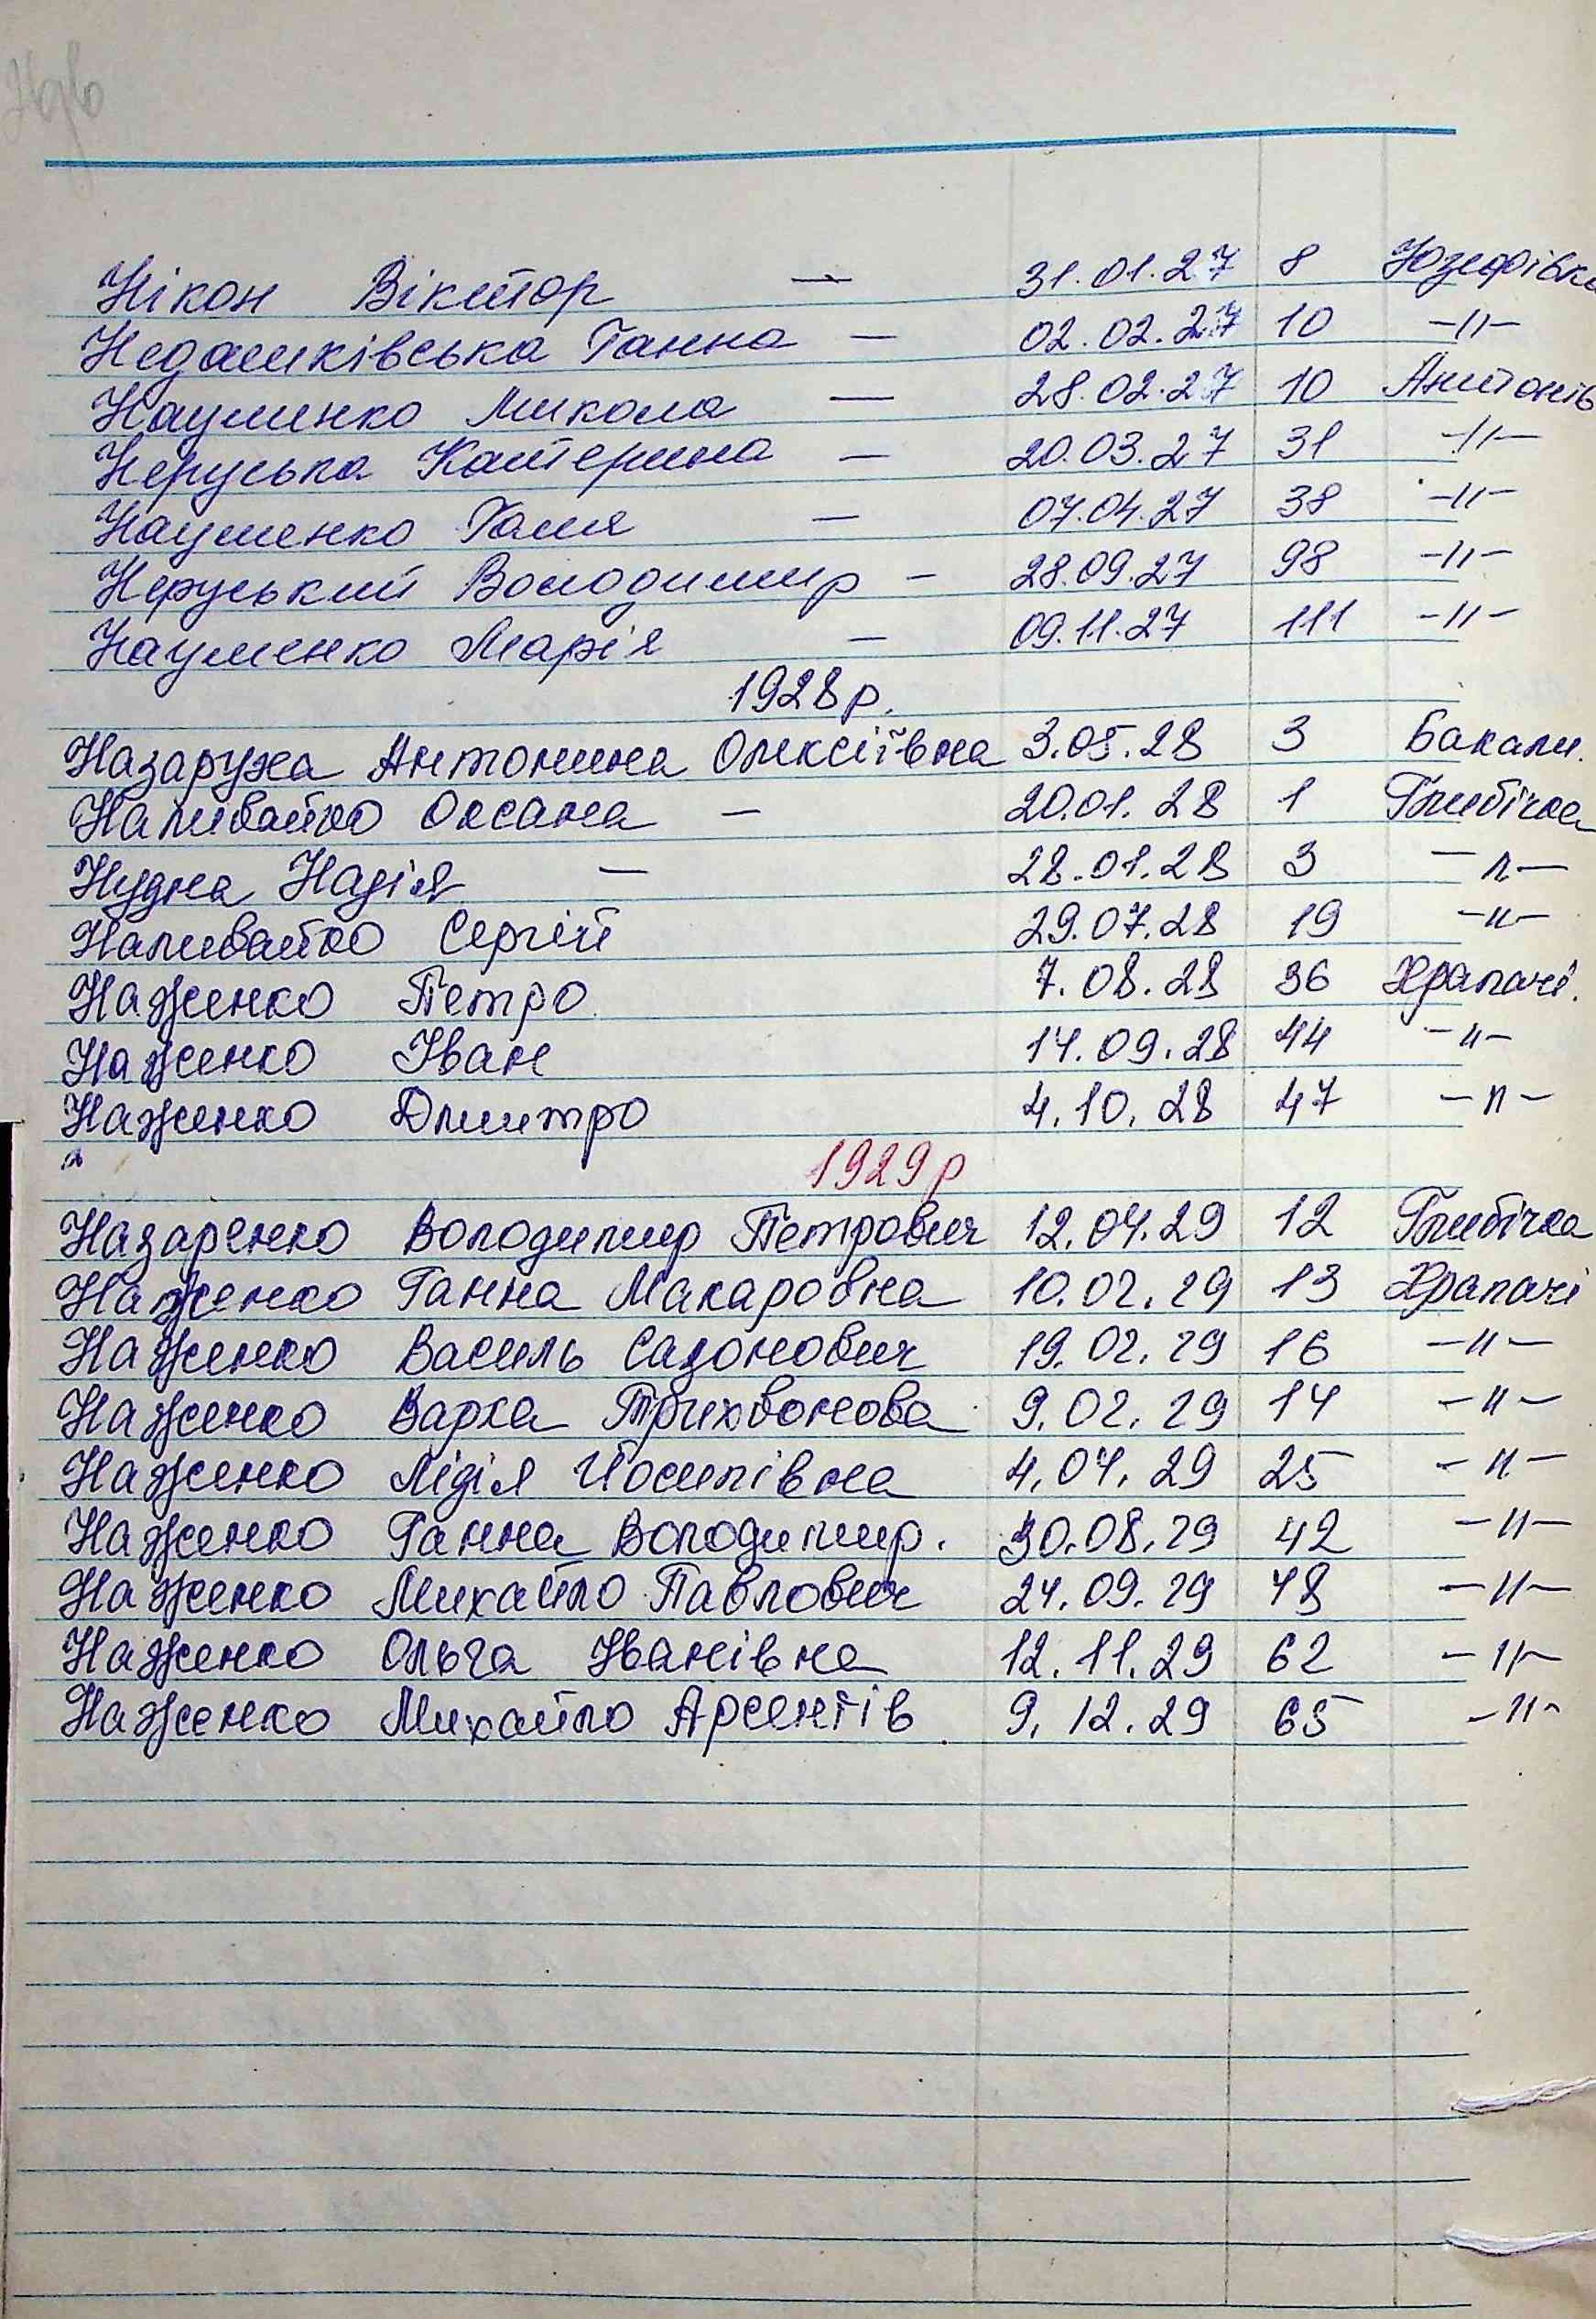 Нікон Віктор — 31.01.27 8 Юзефівка
Недашківська Ганна — 02.02.27 10 -"-
Науменко Микола — 28.02.27 10 Антонів
Неруська Катерина — 20.03.27 31 -"-
Науменко Галя — 07.04.27 38 -"-
Неруський Володимир — 28.09.27 98 -"-
Науменко Марія — 09.11.27 111 -"-
1928р.
Назаруха Антонина Олексіївна 3.05.28 3 Бакали.
Наливайко Оксана — 20.01.28 1 Глибічка
Нудна Надія — 28.01.28 3 -"-
Наливайко Сергій 29.07.28 19 -"-
Наженко Петро 7.08.28 36 Храпачі.
Наженко Іван 14.09.28 44 -"-
Наженко Дмитро 4.10.28 47 -"-
1929р
Назаренко Володимир Петрович 12.04.29 12 Глибічка
Наженко Ганна Макаровна 10.02.29 13 Храпачі
Наженко Василь Сазонович 19.02.29 16 -"-
Наженко Варка Трихвонова 9.02.29 14 -"-
Наженко Лідія Йосипівна 4.04.29 25 -"-
Наженко Ганна Володимир. 30.08.29 42 -"-
Наженко Михайло Павлович 24.09.29 48 -"-
Наженко Ольга Іванівна 12.11.29 62 -"-
Наженко Михайло Арсентів 9.12.29 65 -"-